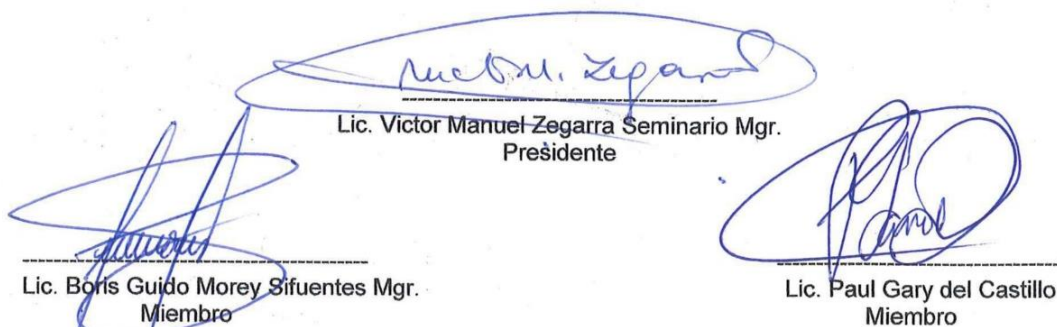 Lic. Victor Manuel Zegarra Seminario Mgr.
Presidente
Lic. Boris Guido Morey Sifuentes Mgr.
Miembro
Lic. Paul Gary del Castillo
Miembro